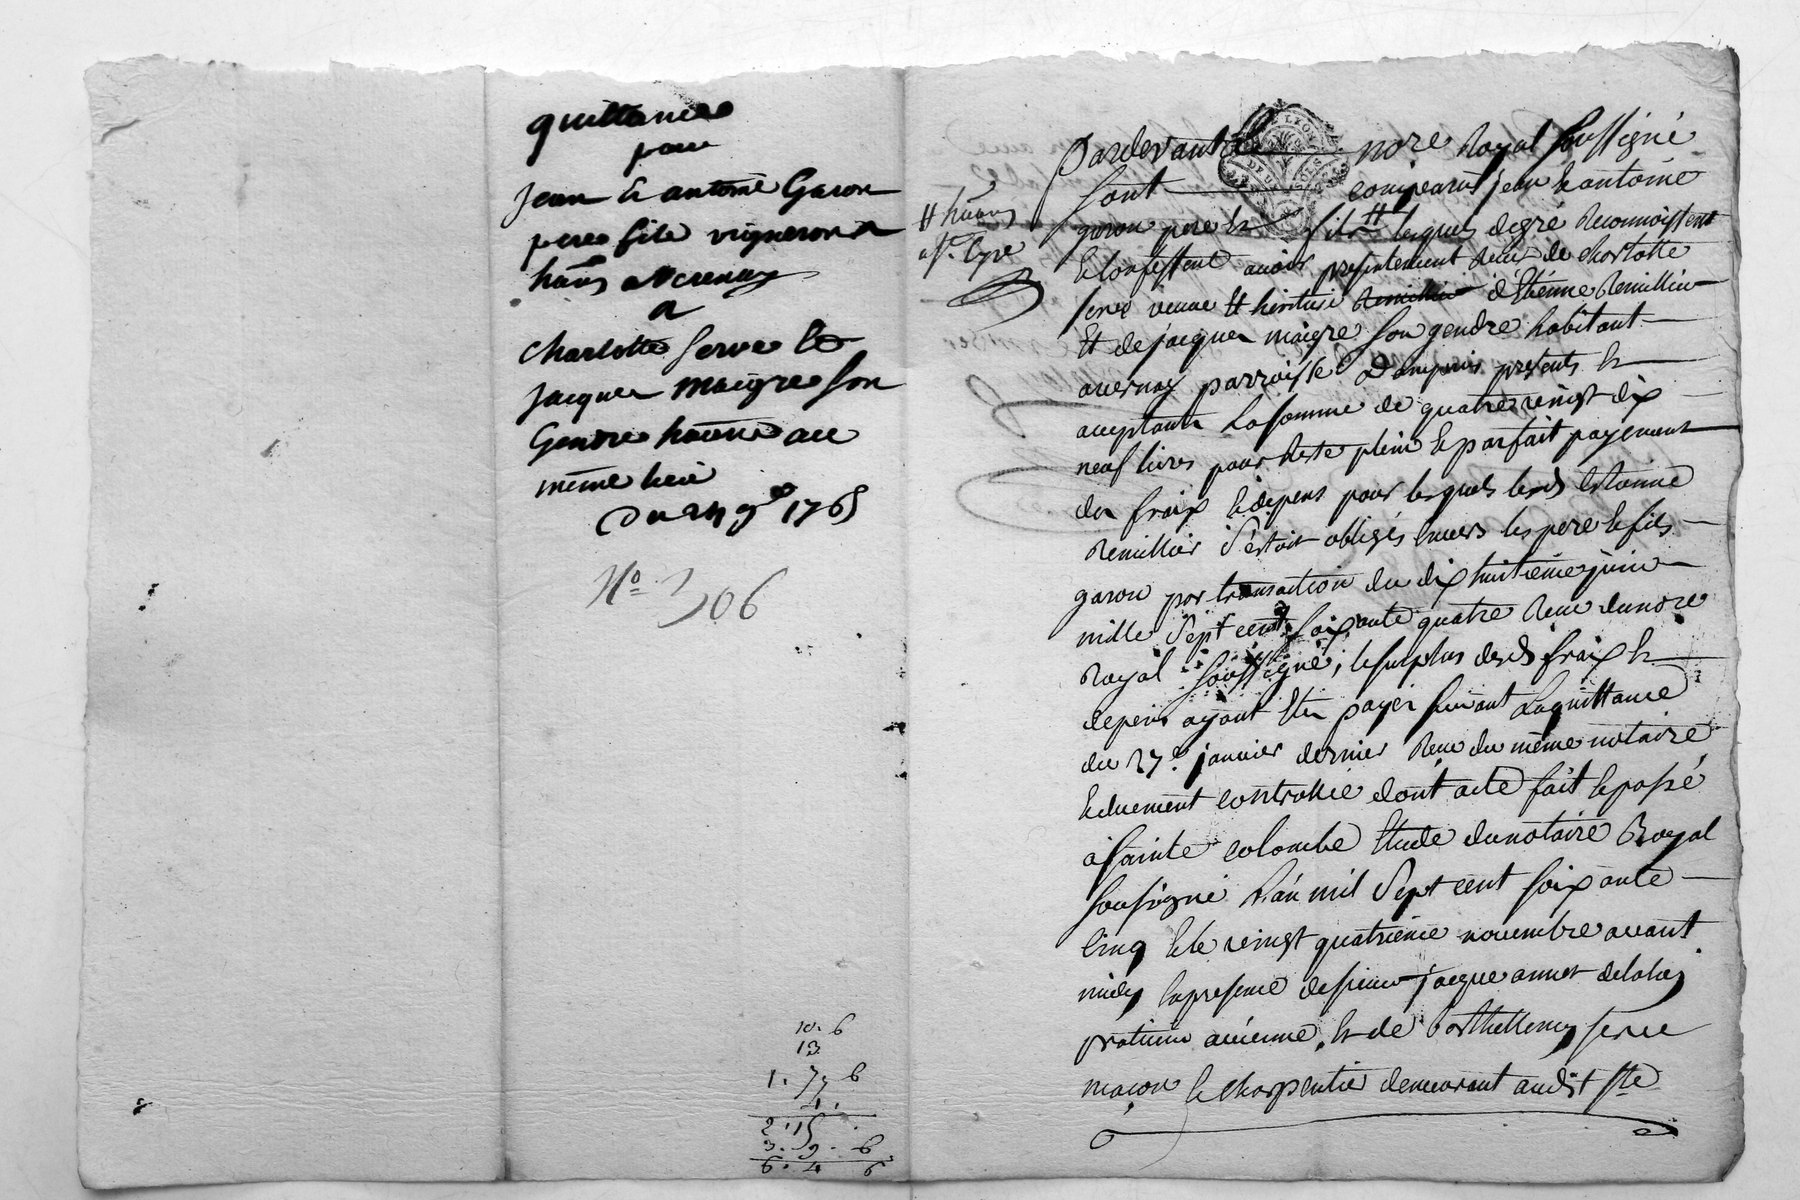 quittance
pour
Jean & antoine Garon
pere & fils vignerons
hâns a Vernay
a
charlotte Serve &
Jacques Maigre Son
Gendre hâns au
même lieu
Du 24 9bre 1765
No 306
10. 6
13
1. 7. 6
4.
2. 15
3. 9. 6
6. 4 6
# hâns
Pardevant le nore Royal soussigné
sont comparus jean & antoine
garon pere & fils # lesquels de gré Reconnoissent
& confessent avoir presentement Reçu de charlotte
serve veuve & heritiere Remillier d'Etienne Remillier
Et de jacques maigre son gendre habitant
a vernay parroisse presents &
acceptants La somme de quatre vingt dix
neuf livres pour Reste plein & parfait payement
des fraix & depens pour lesquels led Etienne
Remillier s'estoit obligés envers les pere & fils
garon par transaction du dix huitieme juin
mille Sept cent soixante quatre Reçue du nore
Royal soussigné, le surplus desd fraix &
depens ayant Eté payer suivant La quittance
du 27e janvier dernier Reçue du même notaire
& duement controllée dont acte fait & passé
a sainte colombe Etude du notaire Royal
soussigné L'an mil Sept cent soixante
cinq & le vingt quatrieme novembre avant
midy En presence de sieur jacque annet delaloy
praticien a vienne, & de Barthellemy serve
maçon & charpentier demeurant audit Ste